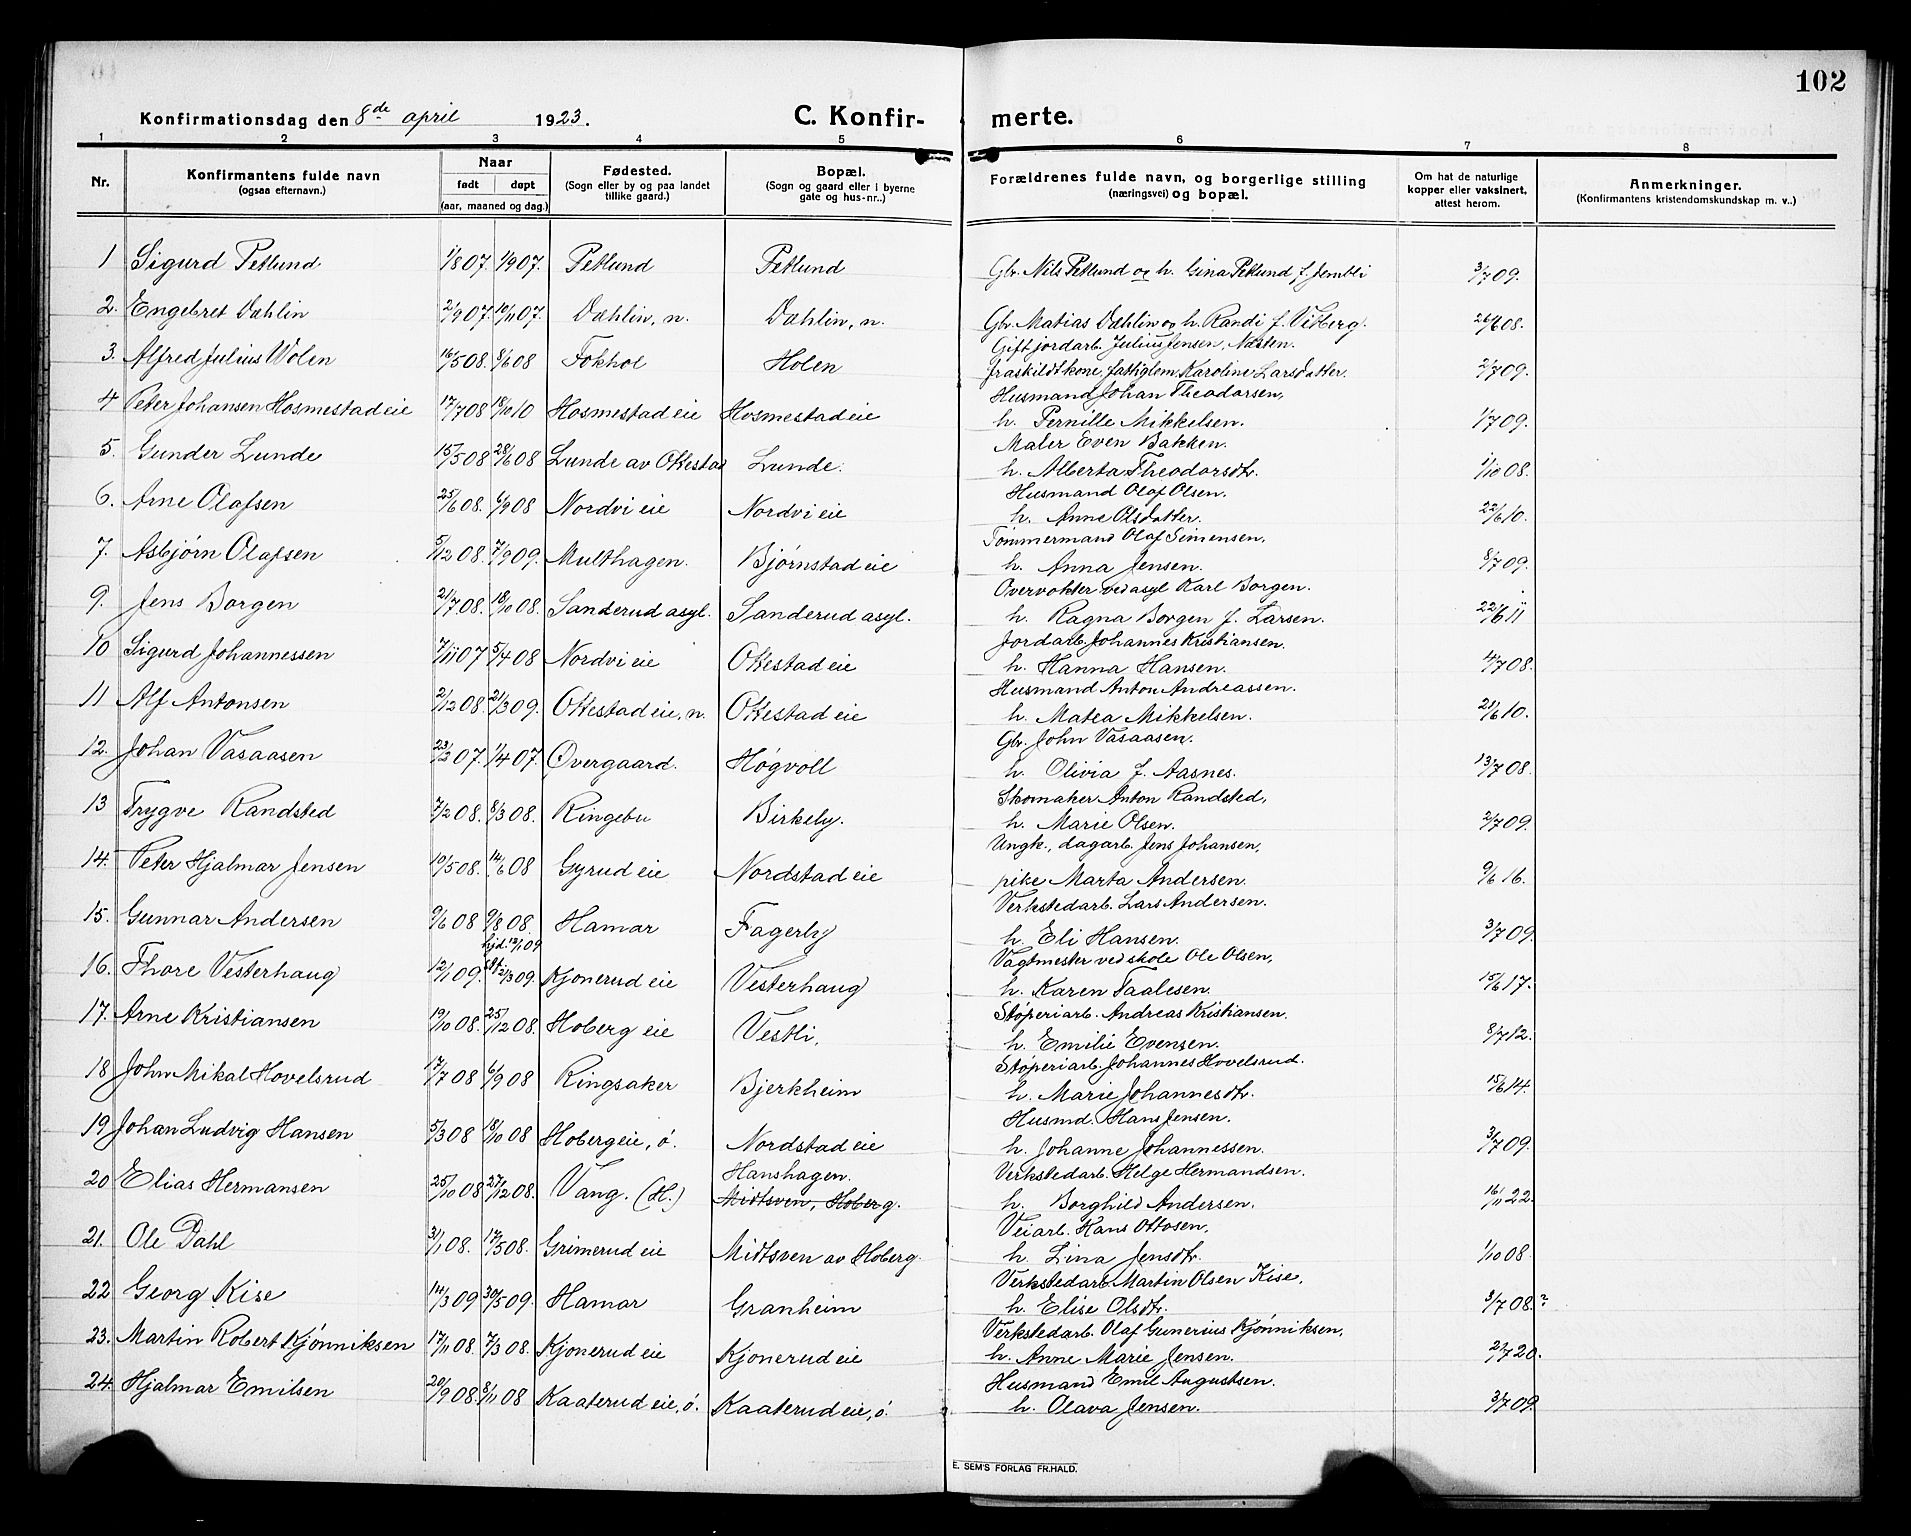 102
Konfirmationsdag den 8de april 1923. C. Konfir- merte.
1 2 3 4 5 6 7 8
Nr. Konfirmantens fulde navn (ogsaa efternavn.) Naar født døpt (aar, maaned og dag.) Fødested. (Sogn eller by og paa landet tillike gaard.) Bopæl. (Sogn og gaard eller i byerne gate og hus-nr..) Forældrenes fulde navn, og borgerlige stilling (næringsvei) og bopæl. Om hat de naturlige kopper eller vaksinert, attest herom. Anmerkninger. (Konfirmantens kristendomskundskap m. v..)
1 Sigurd Petlund 1/8 07. 1/9 07. Petlund Petlund Gbr. Nils Petlund og h. Gina Petlund f. Jembli 3/7 09.
2. Engebret Dæhlin 2/9 07. 10/11 07. Dæhlin, n. Dæhlin, n. Gbr. Matias Dæhlin og h. Randi f. Viberg. 26/6 08.
3. Alfred Julius Wolen 16/5 08 8/6 08 Fokhol Holen Gift jordarb. Julius Jensen, Næsten.
fraskildt kone, fattiglem, Karoline Larsdatter. 2/7 09.
4 Peter Johansen Hosmestadeie 17/7 08 18/10 10 Hosmestadeie Hosmestadeie Husmand Johan Theodorsen,
h. Pernille Mikkelsen. 1/7 09.
5. Gunder Lunde 15/5 08 28/6 08 Lunde av Okestad Lunde. Maler Even Bakken.
h. Alberta Theodorsdtr. 1/10 08.
6. Arne Olafsen 25/6 08. 6/9 08 Nordvi eie Nordvi eie Husmand Olaf Olsen.
h. Anne Olsdatter. 22/6 10.
7. Asbjørn Olafsen 5/12 08. 7/9 09. Multhagen. Bjørnstad eie Tømmermand Olaf Simensen,
h. Anna Jensen. 8/7 09.
9. Jens Borgen 21/7 08. 18/10 08. Sanderud asyl. Sanderud asyl. Overvokter ved asyl Karl Borgen.
h. Ragna Borgen f. Larsen. 22/6 11
10 Sigurd Johannessen 7/11 07 5/4 08 Nordvi eie Okestad eie Jordarb. Johannes Kristiansen.
h. Hanna Hansen. 4/7 08.
11 Alf Antonsen 2/12 08. 21/3 09. Okestad eie, n. Okestad eie Husmand Anton Andreassen.
h. Matea Mikkelsen. 21/6 10.
12. Johan Vasaasen 23/2 07. 1/4 07. Øvergaard. Høgvoll Gbr. John Vasaasen.
h. Olivia f. Aasnes. 13/7 08.
13 Trygve Randsted 7/2 08. 8/3 08. Ringebu Birkeby. Skomaker Anton Randsted,
h. Marie Olsen. 2/7 09.
14. Peter Hjalmar Jensen 10/5 08. 14/6 08 Gyrud eie Nordstad eie Ungk., dagarb. Jens Johansen,
pike Marta Andersen. 9/6 16.
15. Gunnar Andersen 9/6 08 9/8 08. Hamar Fagerby Verkstedarb. Lars Andersen.
h. Eli Hansen. 3/7 09.
16. Thore Vesterhaug 12/1 09. hjd. 12/1 09 21/3 09. Kjonerud eie Vesterhaug Vagtmester ved skole Ole Olsen,
h. Karen Taalesen. 15/6 17.
17. Arne Kristiansen 19/10 08. 25/12 08. Hoberg eie Vestli, Støperiarb. Andreas Kristiansen.
h. Emilie Evensen. 8/7 12.
18 John Mikal Hovelsrud 17/7 08 6/9 08 Ringsaker Bjerkheim Støperiarb. Johannes Hovelsrud.
h. Marie Johannesdtr. 15/6 14.
19 Johan Ludvig Hansen 5/3 08 18/10 08 Hoberg eie, ø. Nordstad eie Husmd. Hans Jensen.
h. Johanne Johannessen. 3/7 09.
20 Elias Hermansen 25/10 08 27/12 08. Vang. (H.) Hanshagen. Midtsven, Hoberg. Verkstedarb. Helge Hermandsen.
h. Borghild Andersen. 16/11 22.
21. Ole Dahl 31/1 08. 17/5 08. Grimerud eie Midtsven av Hoberg. Veiarb. Hans Ottosen,
h. Lina Jensdtr. 1/10 08.
22 Georg Kise 14/3 09 30/5 09. Hamar Granheim Verkstedarb. Martin Olsen Kise,
h. Elise Olsdtr. 3/7 08.?
23. Martin Robert Kjønniksen 17/11 08. 7/3 08. Kjonerud eie Kjonerud eie Verkstedarb. Olaf Gunerius Kjønniksen,
h. Anne Marie Jensen. 2/7 20.
24. Hjalmar Emilsen 20/9 08. 8/11 08 Kaaterud eie, ø. Kaaterud eie, ø. Husmand Emil Augustsen.
h. Olava Jensen. 3/7 09.
E. SEM'S FORLAG FR.HALD.